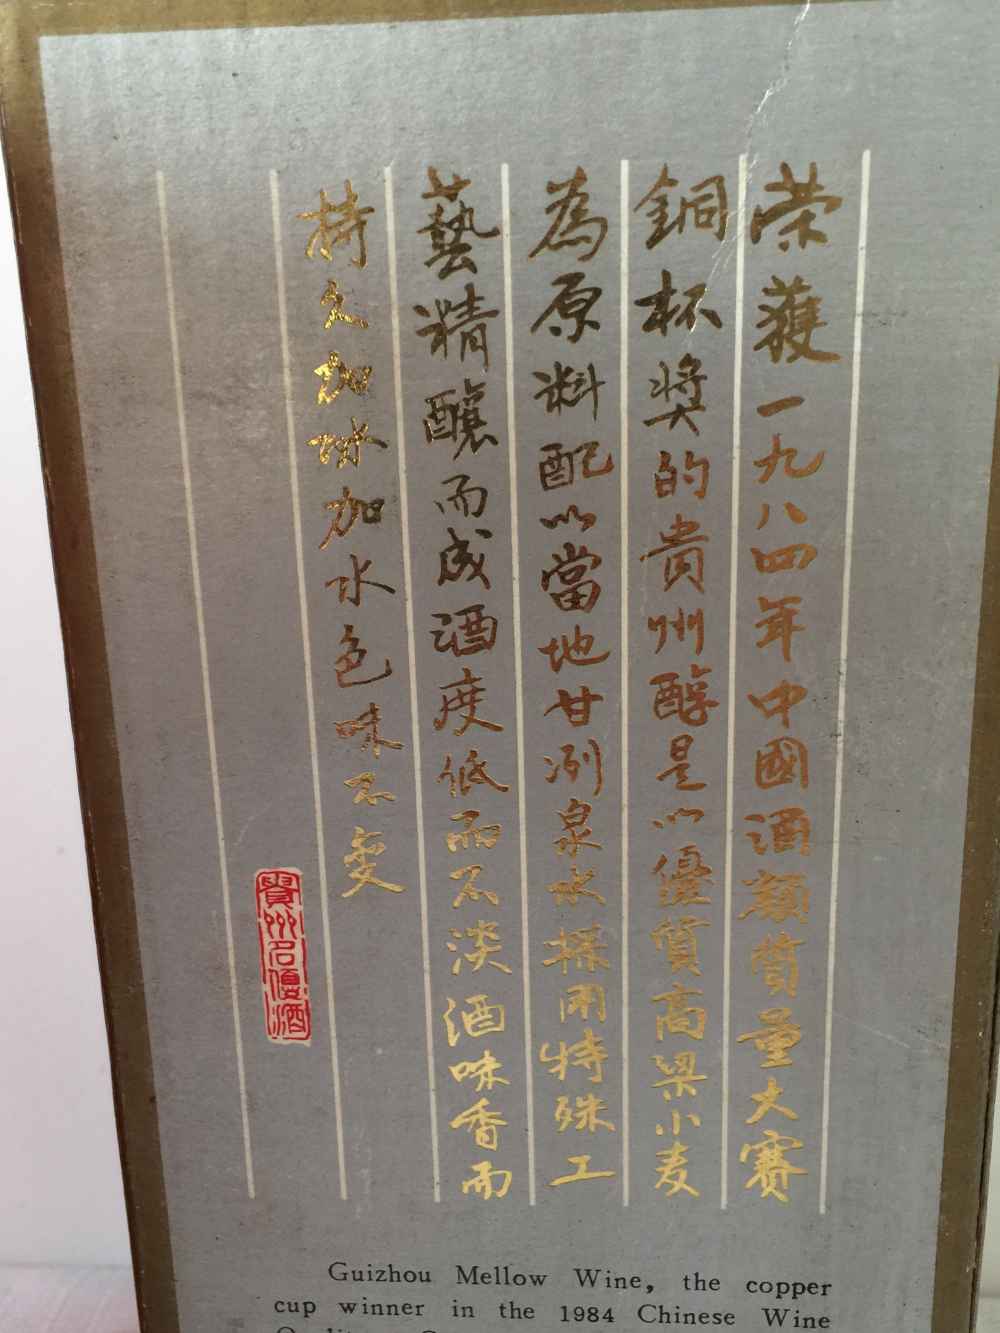 荣獲一九八四年中國酒類質量大賽
銅杯獎的貴州醇是以優質高梁小麦
為原料配以當地甘洌泉水採用特殊工
藝精釀而成酒度低而不淡酒味香而
持久加冰加水色味不变
貴州名優酒
Guizhou Mellow Wine, the copper
cup winner in the 1984 Chinese Wine